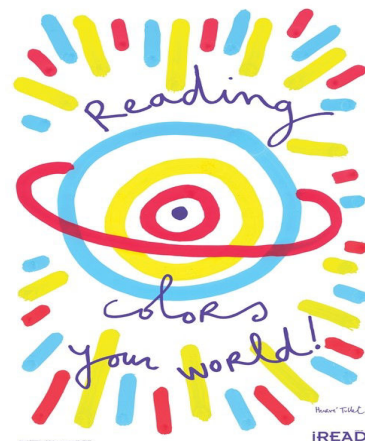 Reading
colors
your world!
Hervé Tullet
iREAD